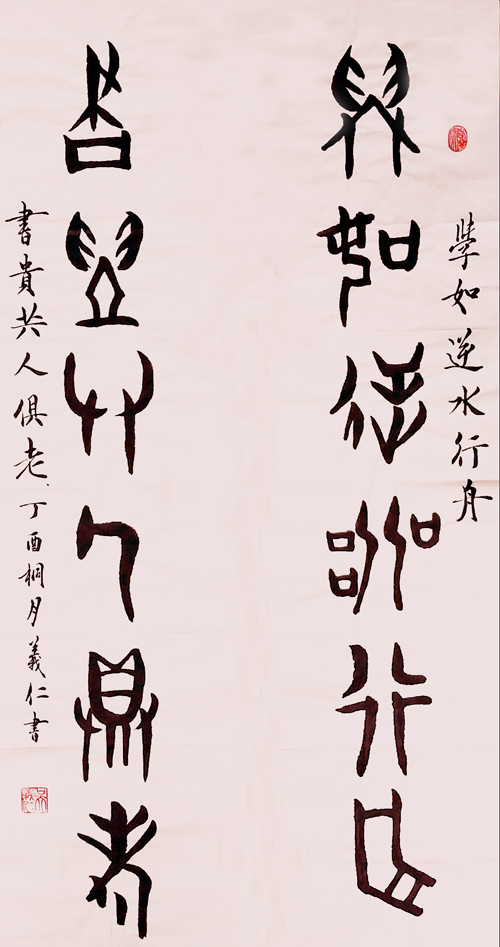 學如逆水行舟
學如逆水行舟
書貴共人俱老
書貴共人俱老丁酉桐月義仁書